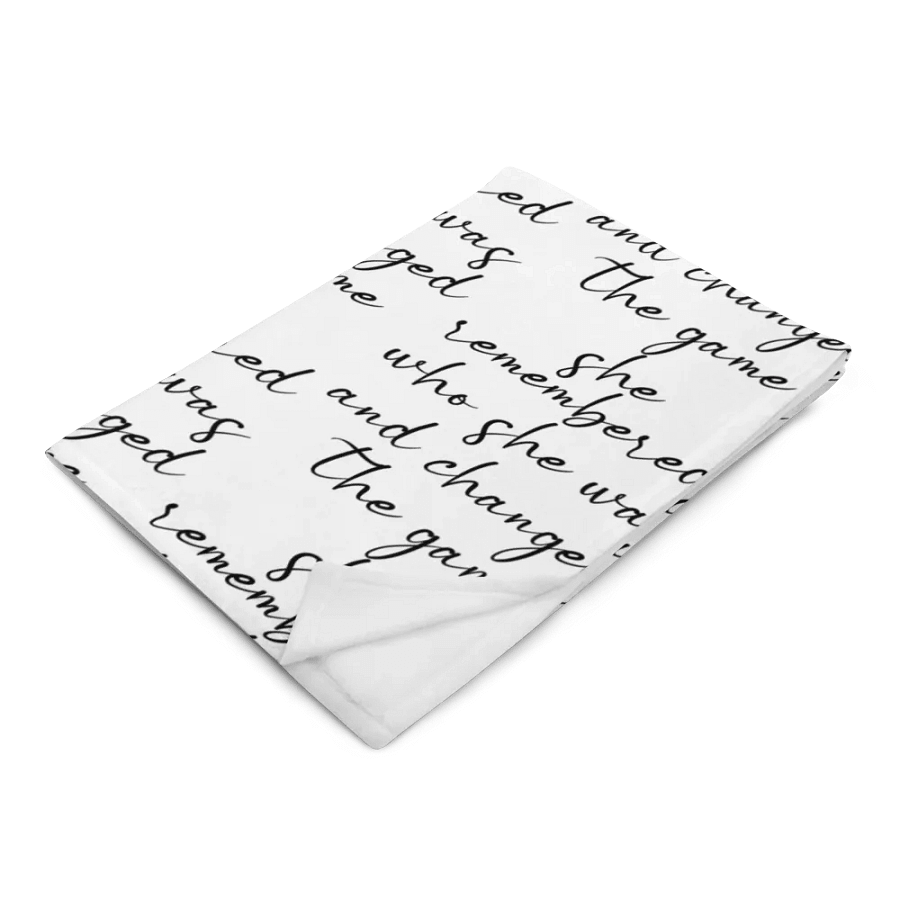 ed and change
was The game
ged
me She
remembered
who she wa
ed and change
was The gam
ged
S
rememb